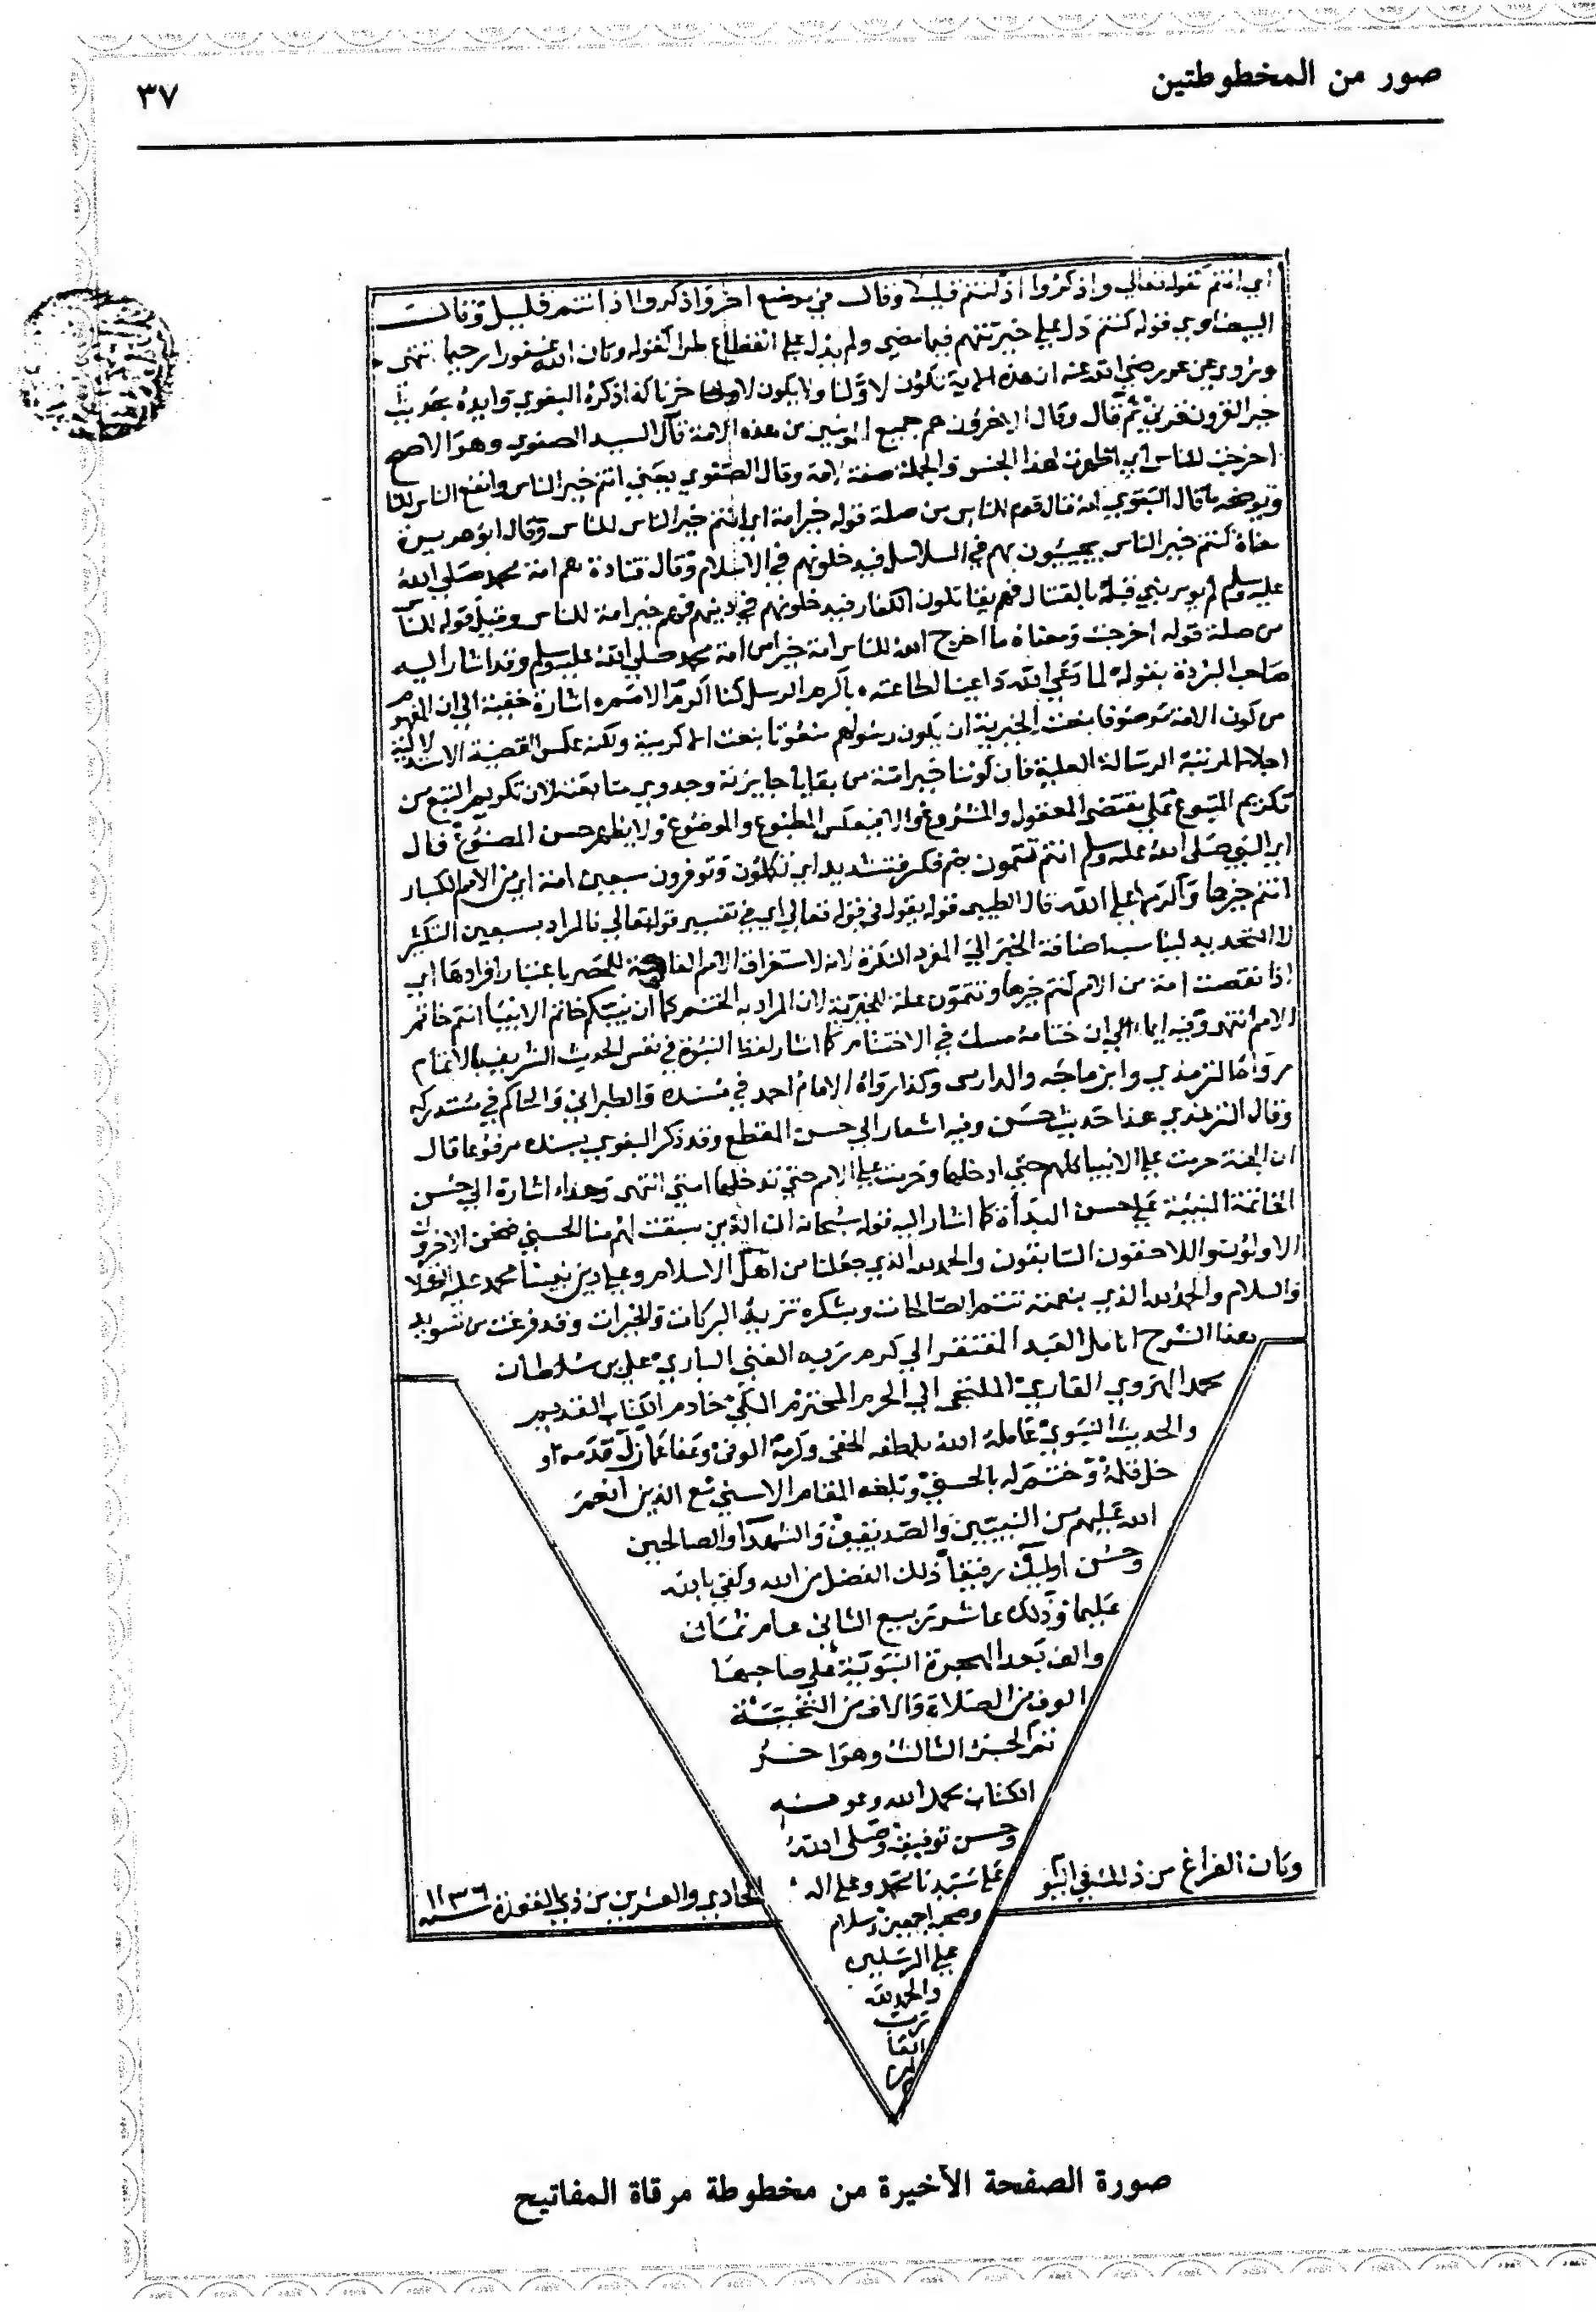 صور من المخطوطتين
٣٧
اي انتم كقوله تعالى واذكروا اذ كنتم قليلا وقال في موضع اخر واذكروا اذ انتم قليل وقال
البيضاوي قوله كنتم دل على خيرتهم فيما مضى ولم يدل على انقطاع طرا كقوله وكان الله غفورا رحيما انتهى
ويروى عن عمر رضي الله عنه ان هذه الاية تكون لاولنا ولا يكون لاخرنا كذا ذكره البغوي وايده بحديث
خير القرون قرني ثم قال وقال الاخرون هم جميع المؤمنين من هذه الامة قال السيد الصفوي وهو الاصح
اخرجت للناس اي اظهرت لهذا الجنس والجملة صفة لامة وقال الصفوي يعني انتم خير الناس وانفع الناس للنا
ويوضحه ما قال البغوي انه قال قوم للناس من صلة قوله خير امة اي انتم خير الناس للناس وقال ابو هريرة
معناه كنتم خير الناس يجيئون بهم في السلاسل فيدخلونهم في الاسلام وقال قتادة هم امة محمد صلى الله
عليه وسلم لم يومر نبي قبله بالقتال فهم يقاتلون الكفار فيدخلونهم في دينهم فهم خير امة للناس وقيل قوله للناس
من صلة قوله اخرجت ومعناه ما اخرج الله للناس امة خيرا من امة محمد صلى الله عليه وسلم وقد اشار اليه
صاحب البردة بقوله لما دعى الله داعينا لطاعته باكرم الرسل كنا اكرم الامم اشارة خفية الى ان المفهوم
من كون الامة موصوفا بنعت الخيرية ان يكون رسولهم منعوتا بنعت الاكرمية ولكنه عكس القضية
اجلالا لمرتبة الرسالة العلية فان كوننا خير امة من بقايا جايزته وجدوى متابعته لان تكريم التبع من
تكريم المتبوع على مقتضى المعقول والمشروع والا فينعكس المطبوع والموضوع ولا يظهر حسن المصنوع قال
اي النبي صلى الله عليه وسلم انتم تتمون بضم فكسر فتشديد اي تكملون وتوفرون سبعين امة اي من الامم الكبار
انتم خيرها واكرمها على الله قال الطيبي قوله يقول في قوله تعالى اي في تفسير قوله تعالى فالمراد بسبعين التكثير
لا التحديد ليناسب اضافة الخير الى المفرد النكرة لانه لاستغراق الامم الفائتة للحصر باعتبار افرادها اي
اذا نقصت امة من الامم كنتم خيرها وتتمون علة للخيرية لان المراد به الختم كما ان نبيكم خاتم الانبيا انتم خاتم
الامم انتهى وفيه ايماء الى ان ختامه مسك في الاختتام كما اشار لفظ النبوة في نفس الحديث الشريف بالاتمام
رواه الترمذي وابن ماجه والدارمي وكذا رواه الامام احمد في مسنده والطبراني والحاكم في مستدركه
وقال الترمذي هذا حديث حسن وفيه اشعار الى حسن المقطع وقد ذكر البغوي بسنده مرفوعا قال
ان الجنة حرمت على الانبيا كلهم حتى ادخلها وحرمت على الامم حتى تدخلها امتي انتهى وهذا اشارة الى حسن
الخاتمة المبنية على حسن البدأة كما اشار اليه قوله سبحانه ان الذين سبقت لهم منا الحسنى فنحن الاخرون
الاولون واللاحقون السابقون والحمد لله الذي جعلنا من اهل الاسلام وعلى دين نبينا محمد عليه الصلاة
والسلام والحمد لله الذي بنعمته تتم الصالحات وبشكره تزيد البركات والخيرات وقد فرغت من تسويد
هذا الشرح انامل العبد المفتقر الى كرم ربه الغني الباري علي بن سلطان
محمد الهروي القاري الملتجي الى الحرم المحترم المكي خادم الكتاب القديم
والحديث النبوي عامله الله بلطفه الخفي وكرمه الوفي وعفا عما زل قدمه او
خل قلمه وختم له بالحسنى وبلغه المقام الاسنى مع الذين انعم
الله عليهم من النبيين والصديقين والشهدا والصالحين
وحسن اوليك رفيقا ذلك الفضل من الله وكفى بالله
عليما وذلك عاشر ربيع الثاني عام ثمان
والف بعد الهجرة النبوية على صاحبها
الوف من الصلاة والاف من التحية
تم الجزء الثالث وهو اخر
الكتاب بحمد الله وعونه
وحسن توفيقه وصلى الله
على سيدنا محمد وعلى اله
وصحبه اجمعين وسلام
على المرسلين
والحمد لله
رب
العا
لمين
وكان الفراغ من ذلك في اليوم
الحادي والعشرين من ذي القعدة سنة ١١٣٦
صورة الصفحة الأخيرة من مخطوطة مرقاة المفاتيح